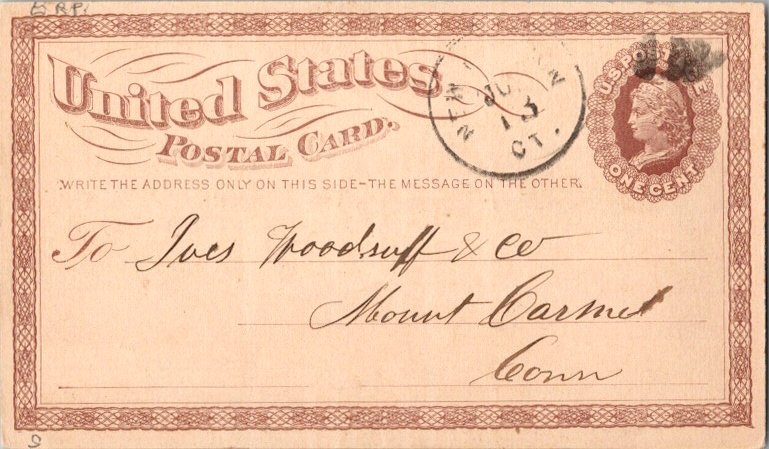 E R.P.
United States
POSTAL CARD.
WRITE THE ADDRESS ONLY ON THIS SIDE-THE MESSAGE ON THE OTHER.
NEW N
JU
13
CT.
U.S. POSTAGE
ONE CENT
To Ives Woodruff & Co
Mount Carmel
Conn
S